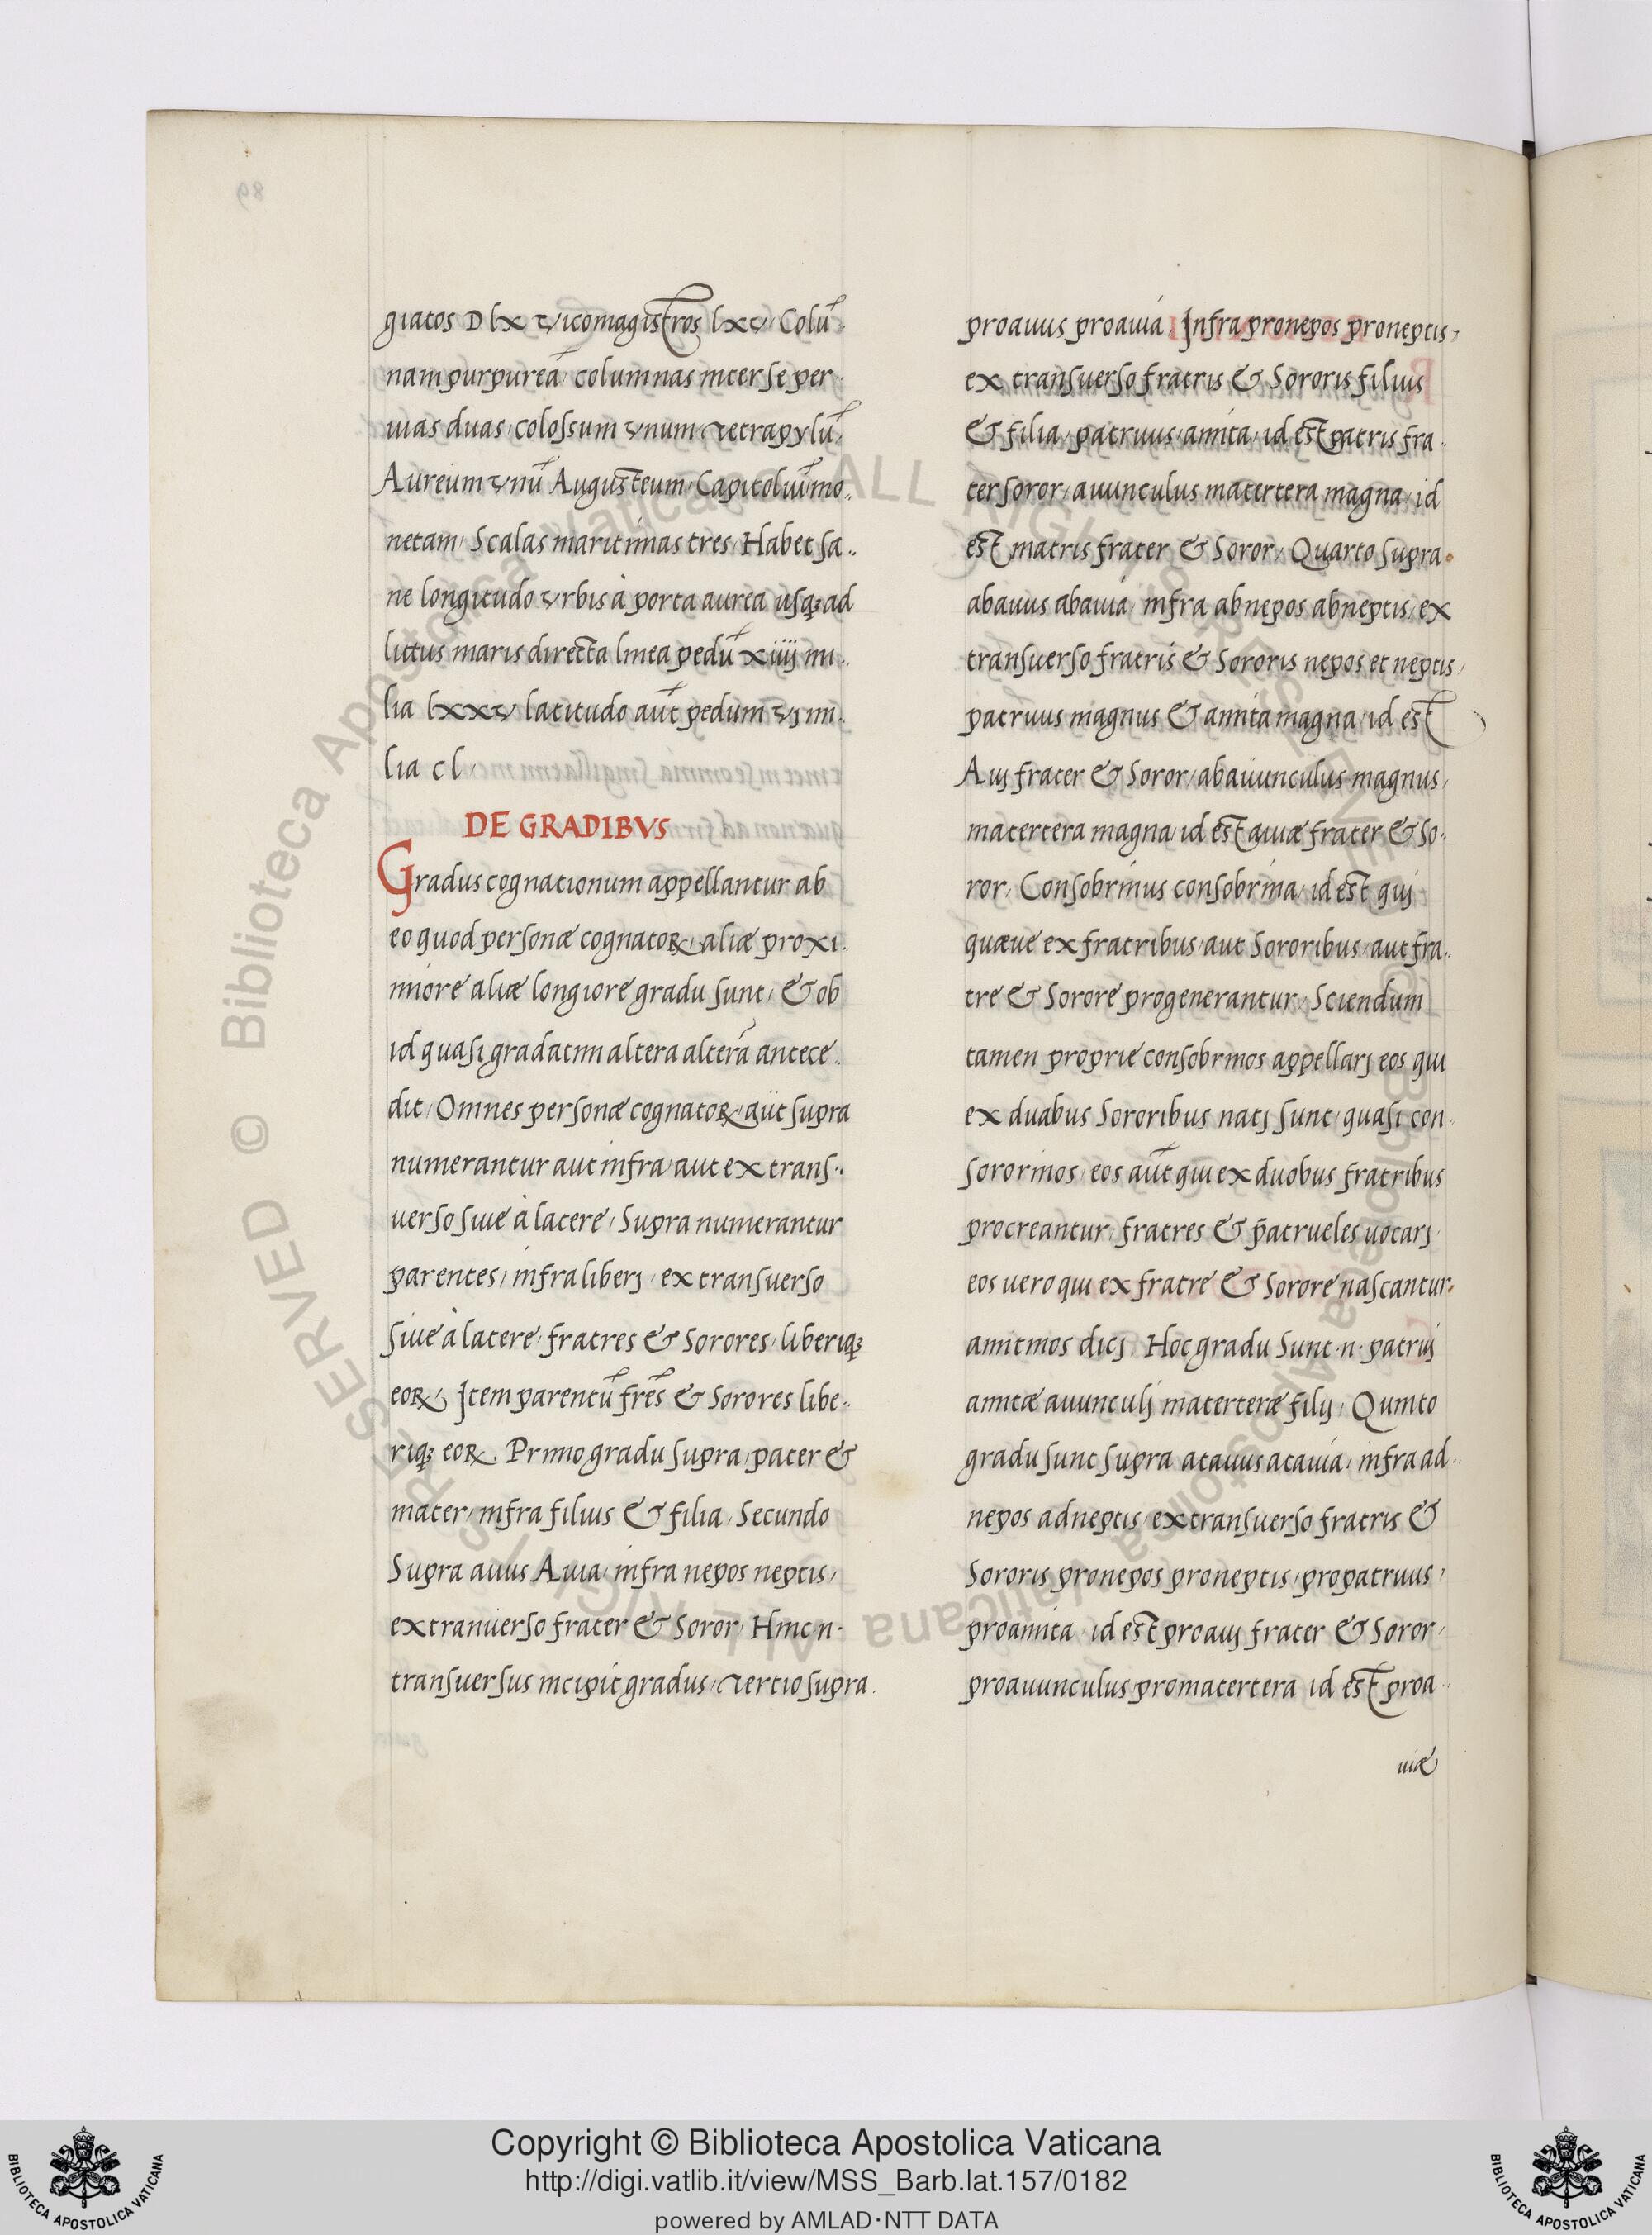 giatos D lx vicomagistros lxv, Colū
nam purpureā, columnas inter se per..
uias duas, colossum vnum, tetrapylū,
Aureum vnū Augusteum, Capitoliū mo..
netam, Scalas maritimas tres, Habet sa..
ne longitudo vrbis à porta aurea usq; ad
littus maris directa linea pedū xiiij mi..
lia lxxv, latitudo aūt pedum vj mi..
lia cl,
DE GRADIBVS
Gradus cognationum appellantur ab
eo quod personæ cognatoꝝ, aliæ proxi..
miore aliæ longiore gradu sunt, & ob
id quasi gradatim altera alterā antece..
dit, Omnes personæ cognatoꝝ, aūt supra
numerantur aut infra, aut ex trans..
uerso siue à latere, Supra numerantur
parentes, infra liberj, ex transuerso
siue à latere, fratres & Sorores, liberiq;
eoꝝ, Item parentū frēs & Sorores libe..
riq; eoꝝ. Primo gradu supra, pater &
mater, infra filius & filia, Secundo
Supra auus Auia, infra nepos neptis,
ex tranuerso frater & Soror, Hinc .n.
transuersus incipit gradus, tertio supra.
proauus proauia, Infra pronepos proneptis,
ex transuerso fratris & Sororis filius
& filia, patruus, amita, id est patris fra..
ter soror, auunculus matertera magna, id
est matris frater & Soror, Quarto supra
abauus abauia, infra abnepos abneptis, ex
transuerso fratris & Sororis nepos et neptis,
patruus magnus & amita magna, id est
Auj frater & Soror, abauunculus magnus,
matertera magna, id est auiæ frater & so..
ror, Consobrinus consobrina, id est quj
quæue ex fratribus, aut Sororibus, aut fra..
tre & Sorore progenerantur, Sciendum
tamen proprie consobrinos appellarj eos qui
ex duabus Sororibus natj sunt, quasi con..
sororinos, eos aūt qui ex duobus fratribus
procreantur, fratres & patrueles uocarj
eos uero qui ex fratre & Sorore nascantur.
amitinos dicj, Hoc gradu Sunt .n. patruj
amitæ auunculj materteræ filij, Quinto
gradu sunt supra atauus atauia, infra ad..
nepos adneptis, ex transuerso fratris &
Sororis pronepos proneptis, propatruus,
proamita, id est proauj frater & Soror,
proauunculus promatertera id est proa..
uiæ
Copyright © Biblioteca Apostolica Vaticana
http://digi.vatlib.it/view/MSS_Barb.lat.157/0182
powered by AMLAD·NTT DATA